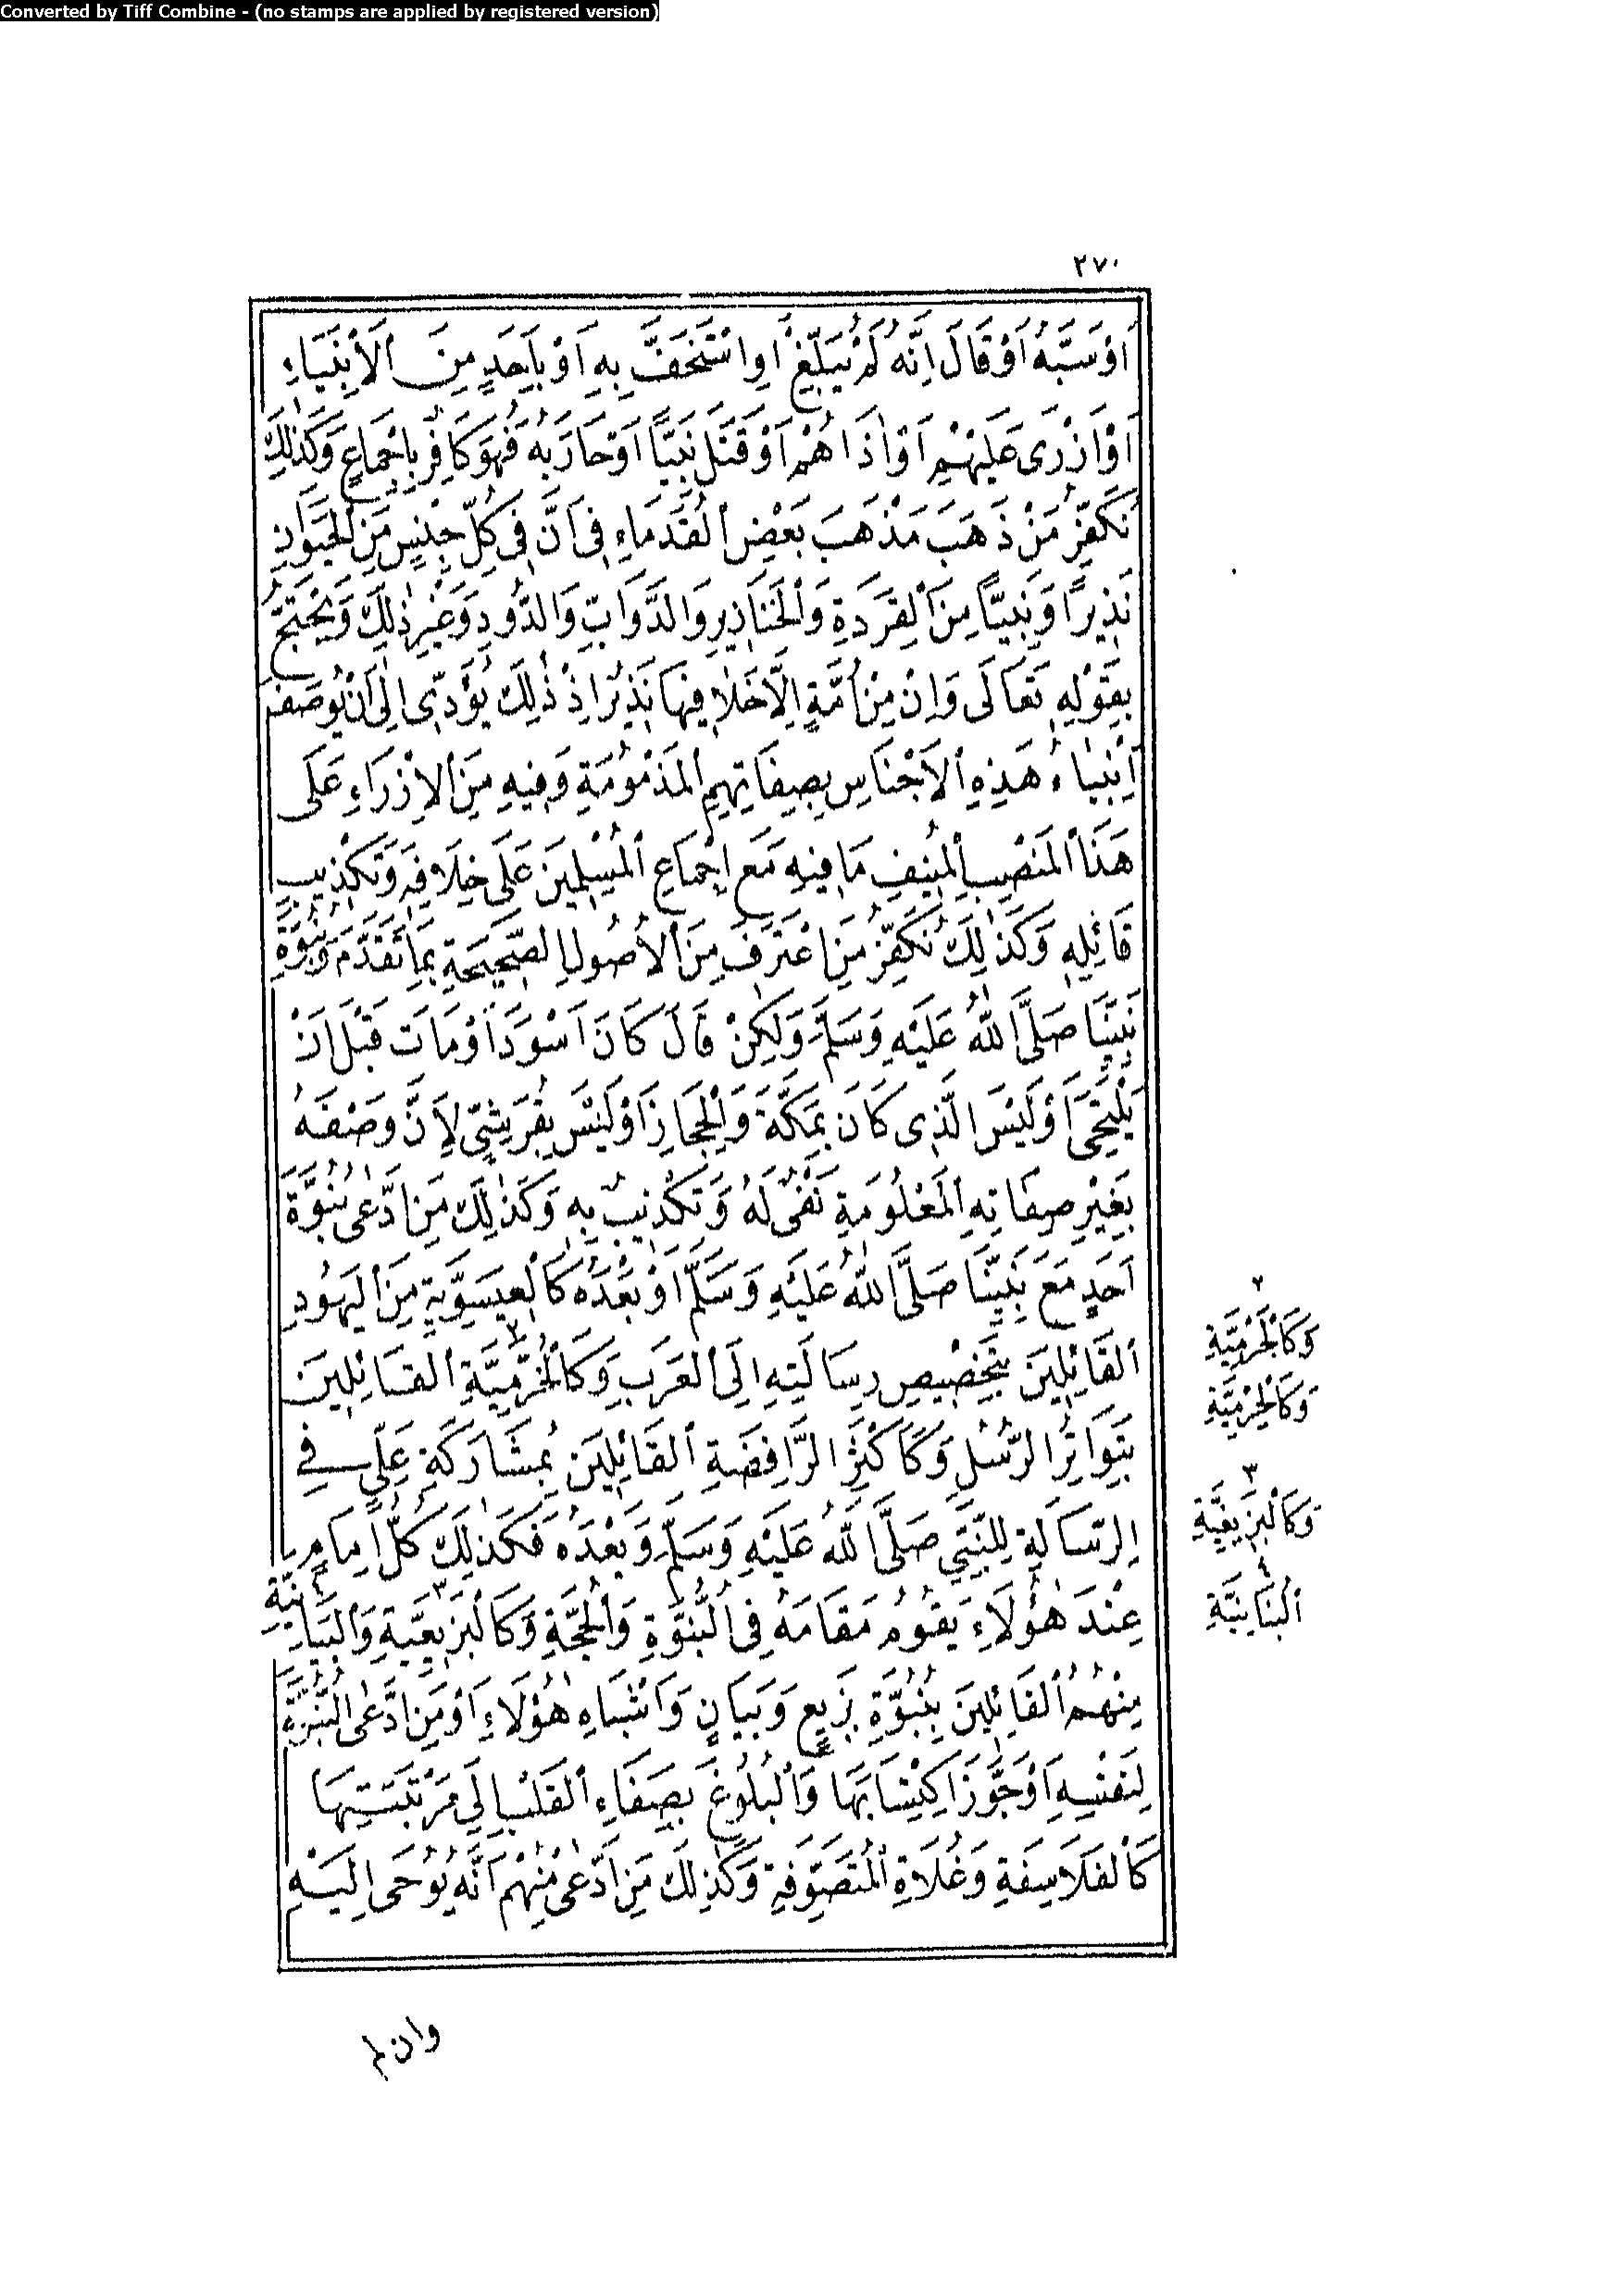 Converted by Tiff Combine - (no stamps are applied by registered version)
٢٧٠
اَوْ سَبَّهُ اَوْ قَالَ اِنَّهُ لَمْ يُبَلِّغْ اَوِ اسْتَخَفَّ بِهِ اَوْ بِاَحَدٍ مِنَ الْاَنْبِيَاءِ
اَوْ اَزْرٰى عَلَيْهِمْ اَوْ اٰذَاهُمْ اَوْ قَتَلَ نَبِيًّا اَوْ حَارَبَهُ فَهُوَ كَافِرٌ بِاِجْمَاعٍ وَكَذٰلِكَ
نُكَفِّرُ مَنْ ذَهَبَ مَذْهَبَ بَعْضِ الْقُدَمَاءِ فِى اَنَّ فِى كُلِّ جِنْسٍ مِنَ الْحَيَوَانِ
نَذِيرًا وَنَبِيًّا مِنَ الْقِرَدَةِ وَالْخَنَازِيرِ وَالدَّوَابِّ وَالدُّودِ وَغَيْرِ ذٰلِكَ وَيَحْتَجُّ
بِقَوْلِهِ تَعَالَى وَاِنْ مِنْ اُمَّةٍ اِلَّا خَلَا فِيهَا نَذِيرٌ اِذْ ذٰلِكَ يُؤَدِّى اِلٰى اَنْ يُوصَفَ
اَنْبِيَاءُ هَذِهِ الْاَجْنَاسِ بِصِفَاتِهِمِ الْمَذْمُومَةِ وَفِيهِ مِنَ الْاِزْرَاءِ عَلَى
هَذَا الْمَنْصِبِ الْمُنِيفِ مَا فِيهِ مَعَ اِجْمَاعِ الْمُسْلِمِينَ عَلَى خِلَافِهِ وَتَكْذِيبِ
قَائِلِهِ وَكَذٰلِكَ نُكَفِّرُ مَنِ اعْتَرَفَ مِنَ الْاُصُولِ الصَّحِيحَةِ بِمَا تَقَدَّمَ وَنُبُوَّةِ
نَبِيِّنَا صَلَّى اللّٰهُ عَلَيْهِ وَسَلَّمَ وَلٰكِنْ قَالَ كَانَ اَسْوَدَ اَوْ مَاتَ قَبْلَ اَنْ
يَلْتَحِىَ اَوْ لَيْسَ الَّذِى كَانَ بِمَكَّةَ وَالْحِجَازِ اَوْ لَيْسَ بِقُرَشِىٍّ لِاَنَّ وَصْفَهُ
بِغَيْرِ صِفَاتِهِ الْمَعْلُومَةِ نَفْىٌ لَهُ وَتَكْذِيبٌ بِهِ وَكَذٰلِكَ مَنِ ادَّعٰى نُبُوَّةَ
اَحَدٍ مَعَ نَبِيِّنَا صَلَّى اللّٰهُ عَلَيْهِ وَسَلَّمَ اَوْ بَعْدَهُ كَالْعِيسَوِيَّةِ مِنَ الْيَهُودِ
الْقَائِلِينَ بِتَخْصِيصِ رِسَالَتِهِ اِلَى الْعَرَبِ وَكَالْخُرَّمِيَّةِ٢ الْقَائِلِينَ
بِتَوَاتُرِ الرُّسُلِ وَكَاَكْثَرِ الرَّافِضَةِ الْقَائِلِينَ بِمُشَارَكَةِ عَلِىٍّ فِى
الرِّسَالَةِ لِلنَّبِىِّ صَلَّى اللّٰهُ عَلَيْهِ وَسَلَّمَ وَبَعْدَهُ فَكَذٰلِكَ كُلُّ اِمَامٍ
عِنْدَ هٰؤُلَاءِ يَقُومُ مَقَامَهُ فِى النُّبُوَّةِ وَالْحُجَّةِ وَكَالْبَزِيعِيَّةِ٣ وَالْبَيَانِيَّةِ٤
مِنْهُمُ الْقَائِلِينَ بِنُبُوَّةِ بَزِيعٍ وَبَيَانٍ وَاَشْبَاهِ هٰؤُلَاءِ اَوْ مَنِ ادَّعٰى النُّبُوَّةَ
لِنَفْسِهِ اَوْ جَوَّزَ اكْتِسَابَهَا وَالْبُلُوغَ بِصَفَاءِ الْقَلْبِ اِلَى مَرْتَبَتِهَا
كَالْفَلَاسِفَةِ وَغُلَاةِ الْمُتَصَوِّفَةِ وَكَذٰلِكَ مَنِ ادَّعٰى مِنْهُمْ اَنَّهُ يُوحٰى اِلَيْهِ
٢
وَكَالْجَرْمِيَّةِ
وَكَالْحِرْمِيَّةِ
٣
وَكَالْبَزِيغِيَّةِ
٤
الْبَنَانِيَّةِ
وان لم